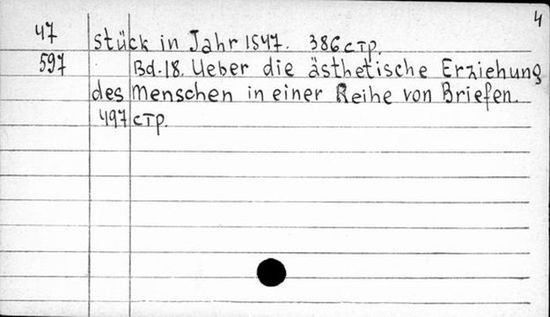 4
47 stück in Jahr 1547. 386 стр.
597 Bd.18. Ueber die ästhetische Erziehung
des Menschen in einer Reihe von Briefen.
497 стр.